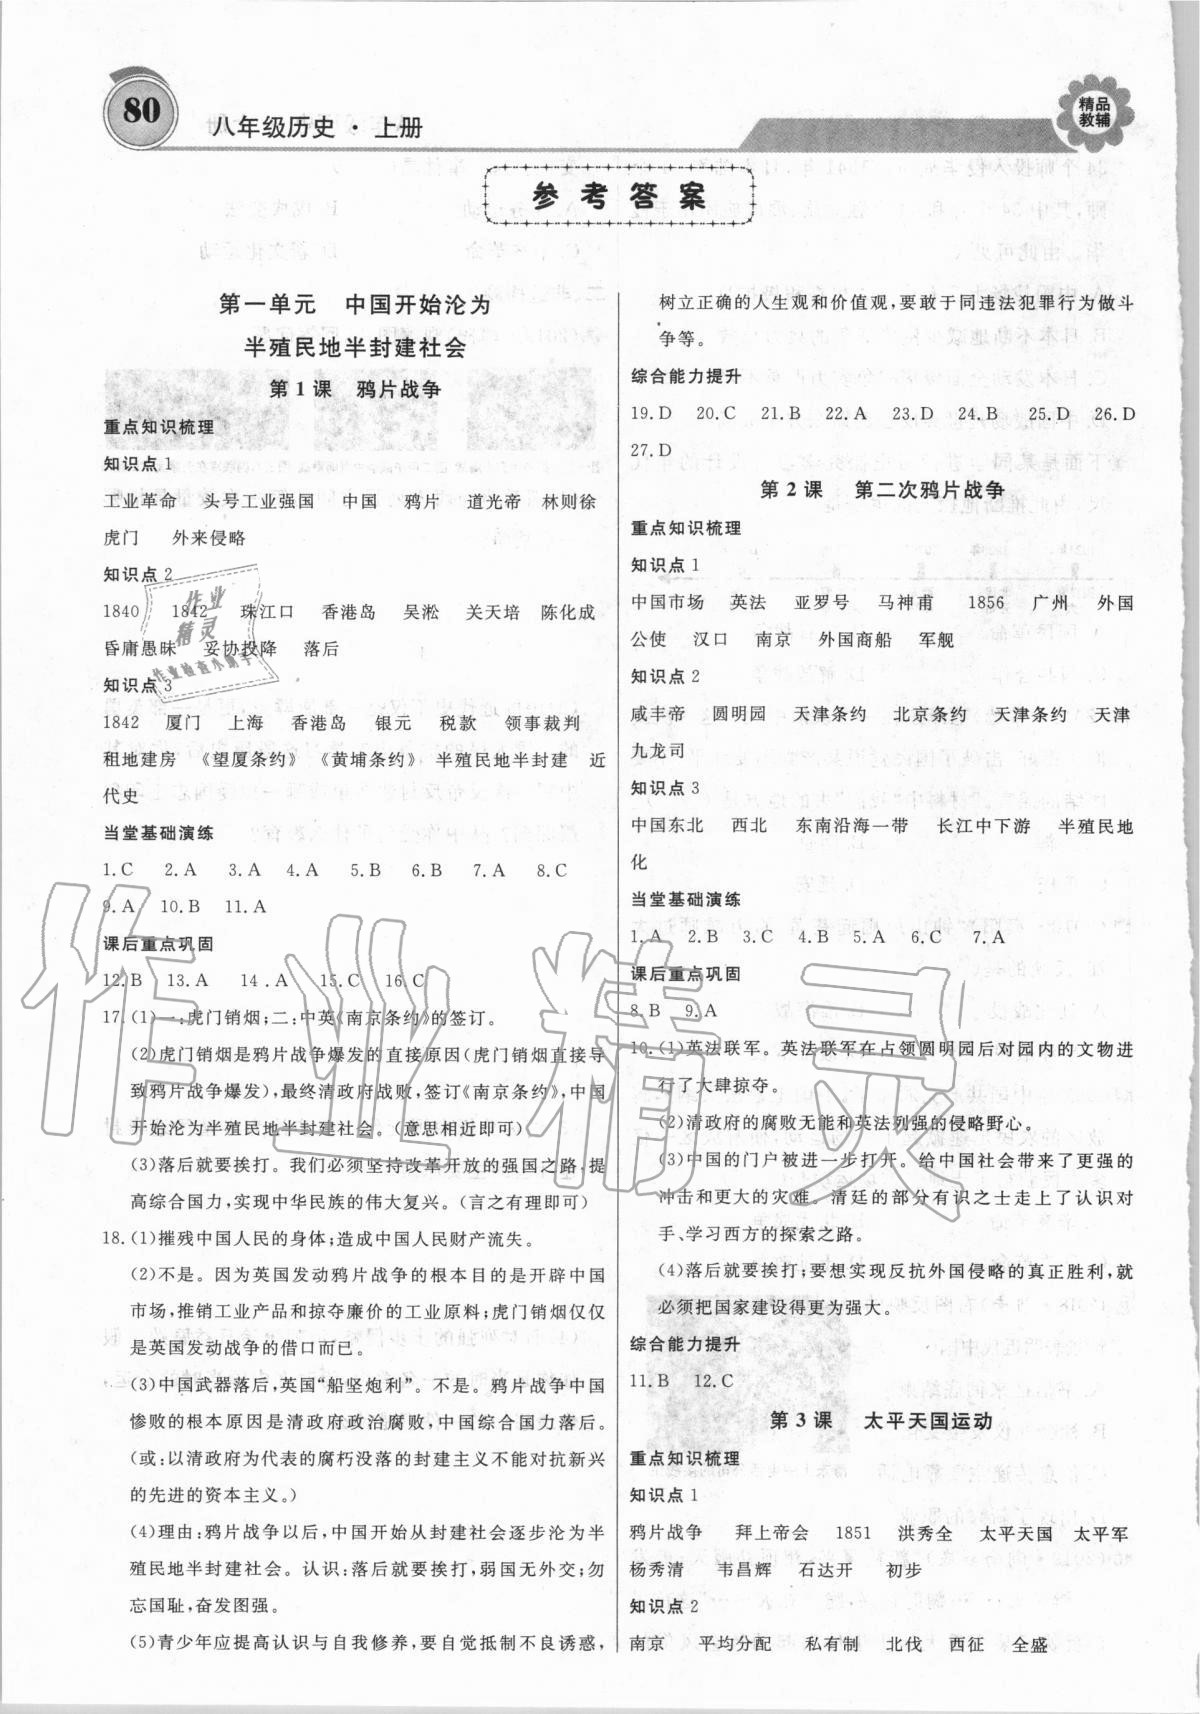 80
八年级历史·上册
精品
教辅
参考答案
第一单元 中国开始沦为
半殖民地半封建社会
第1课 鸦片战争
重点知识梳理
知识点1
工业革命 头号工业强国 中国 鸦片 道光帝 林则徐
虎门 外来侵略
知识点2
1840 1842 珠江口 香港岛 吴淞 关天培 陈化成
昏庸愚昧 妥协投降 落后
知识点3
1842 厦门 上海 香港岛 银元 税款 领事裁判
租地建房 《望厦条约》 《黄埔条约》 半殖民地半封建 近
代史
当堂基础演练
1.C 2.A 3.A 4.A 5.B 6.B 7.A 8.C
9.A 10.B 11.A
课后重点巩固
12.B 13.A 14.A 15.C 16.C
17.(1)一:虎门销烟;二:中英《南京条约》的签订。
(2)虎门销烟是鸦片战争爆发的直接原因(虎门销烟直接导
致鸦片战争爆发),最终清政府战败,签订《南京条约》,中国
开始沦为半殖民地半封建社会。(意思相近即可)
(3)落后就要挨打。我们必须坚持改革开放的强国之路,提
高综合国力,实现中华民族的伟大复兴。(言之有理即可)
18.(1)摧残中国人民的身体;造成中国人民财产流失。
(2)不是。因为英国发动鸦片战争的根本目的是开辟中国
市场,推销工业产品和掠夺廉价的工业原料;虎门销烟仅仅
是英国发动战争的借口而已。
(3)中国武器落后,英国“船坚炮利”。不是。鸦片战争中国
惨败的根本原因是清政府政治腐败,中国综合国力落后。
(或:以清政府为代表的腐朽没落的封建主义不能对抗新兴
的先进的资本主义。)
(4)理由:鸦片战争以后,中国开始从封建社会逐步沦为半
殖民地半封建社会。认识:落后就要挨打;弱国无外交;勿
忘国耻,奋发图强。
(5)青少年应提高认识与自我修养,要自觉抵制不良诱惑,
树立正确的人生观和价值观,要敢于同违法犯罪行为做斗
争等。
综合能力提升
19.D 20.C 21.B 22.A 23.D 24.B 25.D 26.D
27.D
第2课 第二次鸦片战争
重点知识梳理
知识点1
中国市场 英法 亚罗号 马神甫 1856 广州 外国
公使 汉口 南京 外国商船 军舰
知识点2
咸丰帝 圆明园 天津条约 北京条约 天津条约 天津
九龙司
知识点3
中国东北 西北 东南沿海一带 长江中下游 半殖民地
化
当堂基础演练
1.A 2.B 3.C 4.B 5.A 6.C 7.A
课后重点巩固
8.B 9.A
10.(1)英法联军。英法联军在占领圆明园后对园内的文物进
行了大肆掠夺。
(2)清政府的腐败无能和英法列强的侵略野心。
(3)中国的门户被进一步打开。给中国社会带来了更强的
冲击和更大的灾难。清廷的部分有识之士走上了认识对
手、学习西方的探索之路。
(4)落后就要挨打;要想实现反抗外国侵略的真正胜利,就
必须把国家建设得更为强大。
综合能力提升
11.B 12.C
第3课 太平天国运动
重点知识梳理
知识点1
鸦片战争 拜上帝会 1851 洪秀全 太平天国 太平军
杨秀清 韦昌辉 石达开 初步
知识点2
南京 平均分配 私有制 北伐 西征 全盛
作业
精灵
作业检查小助手
作业精灵